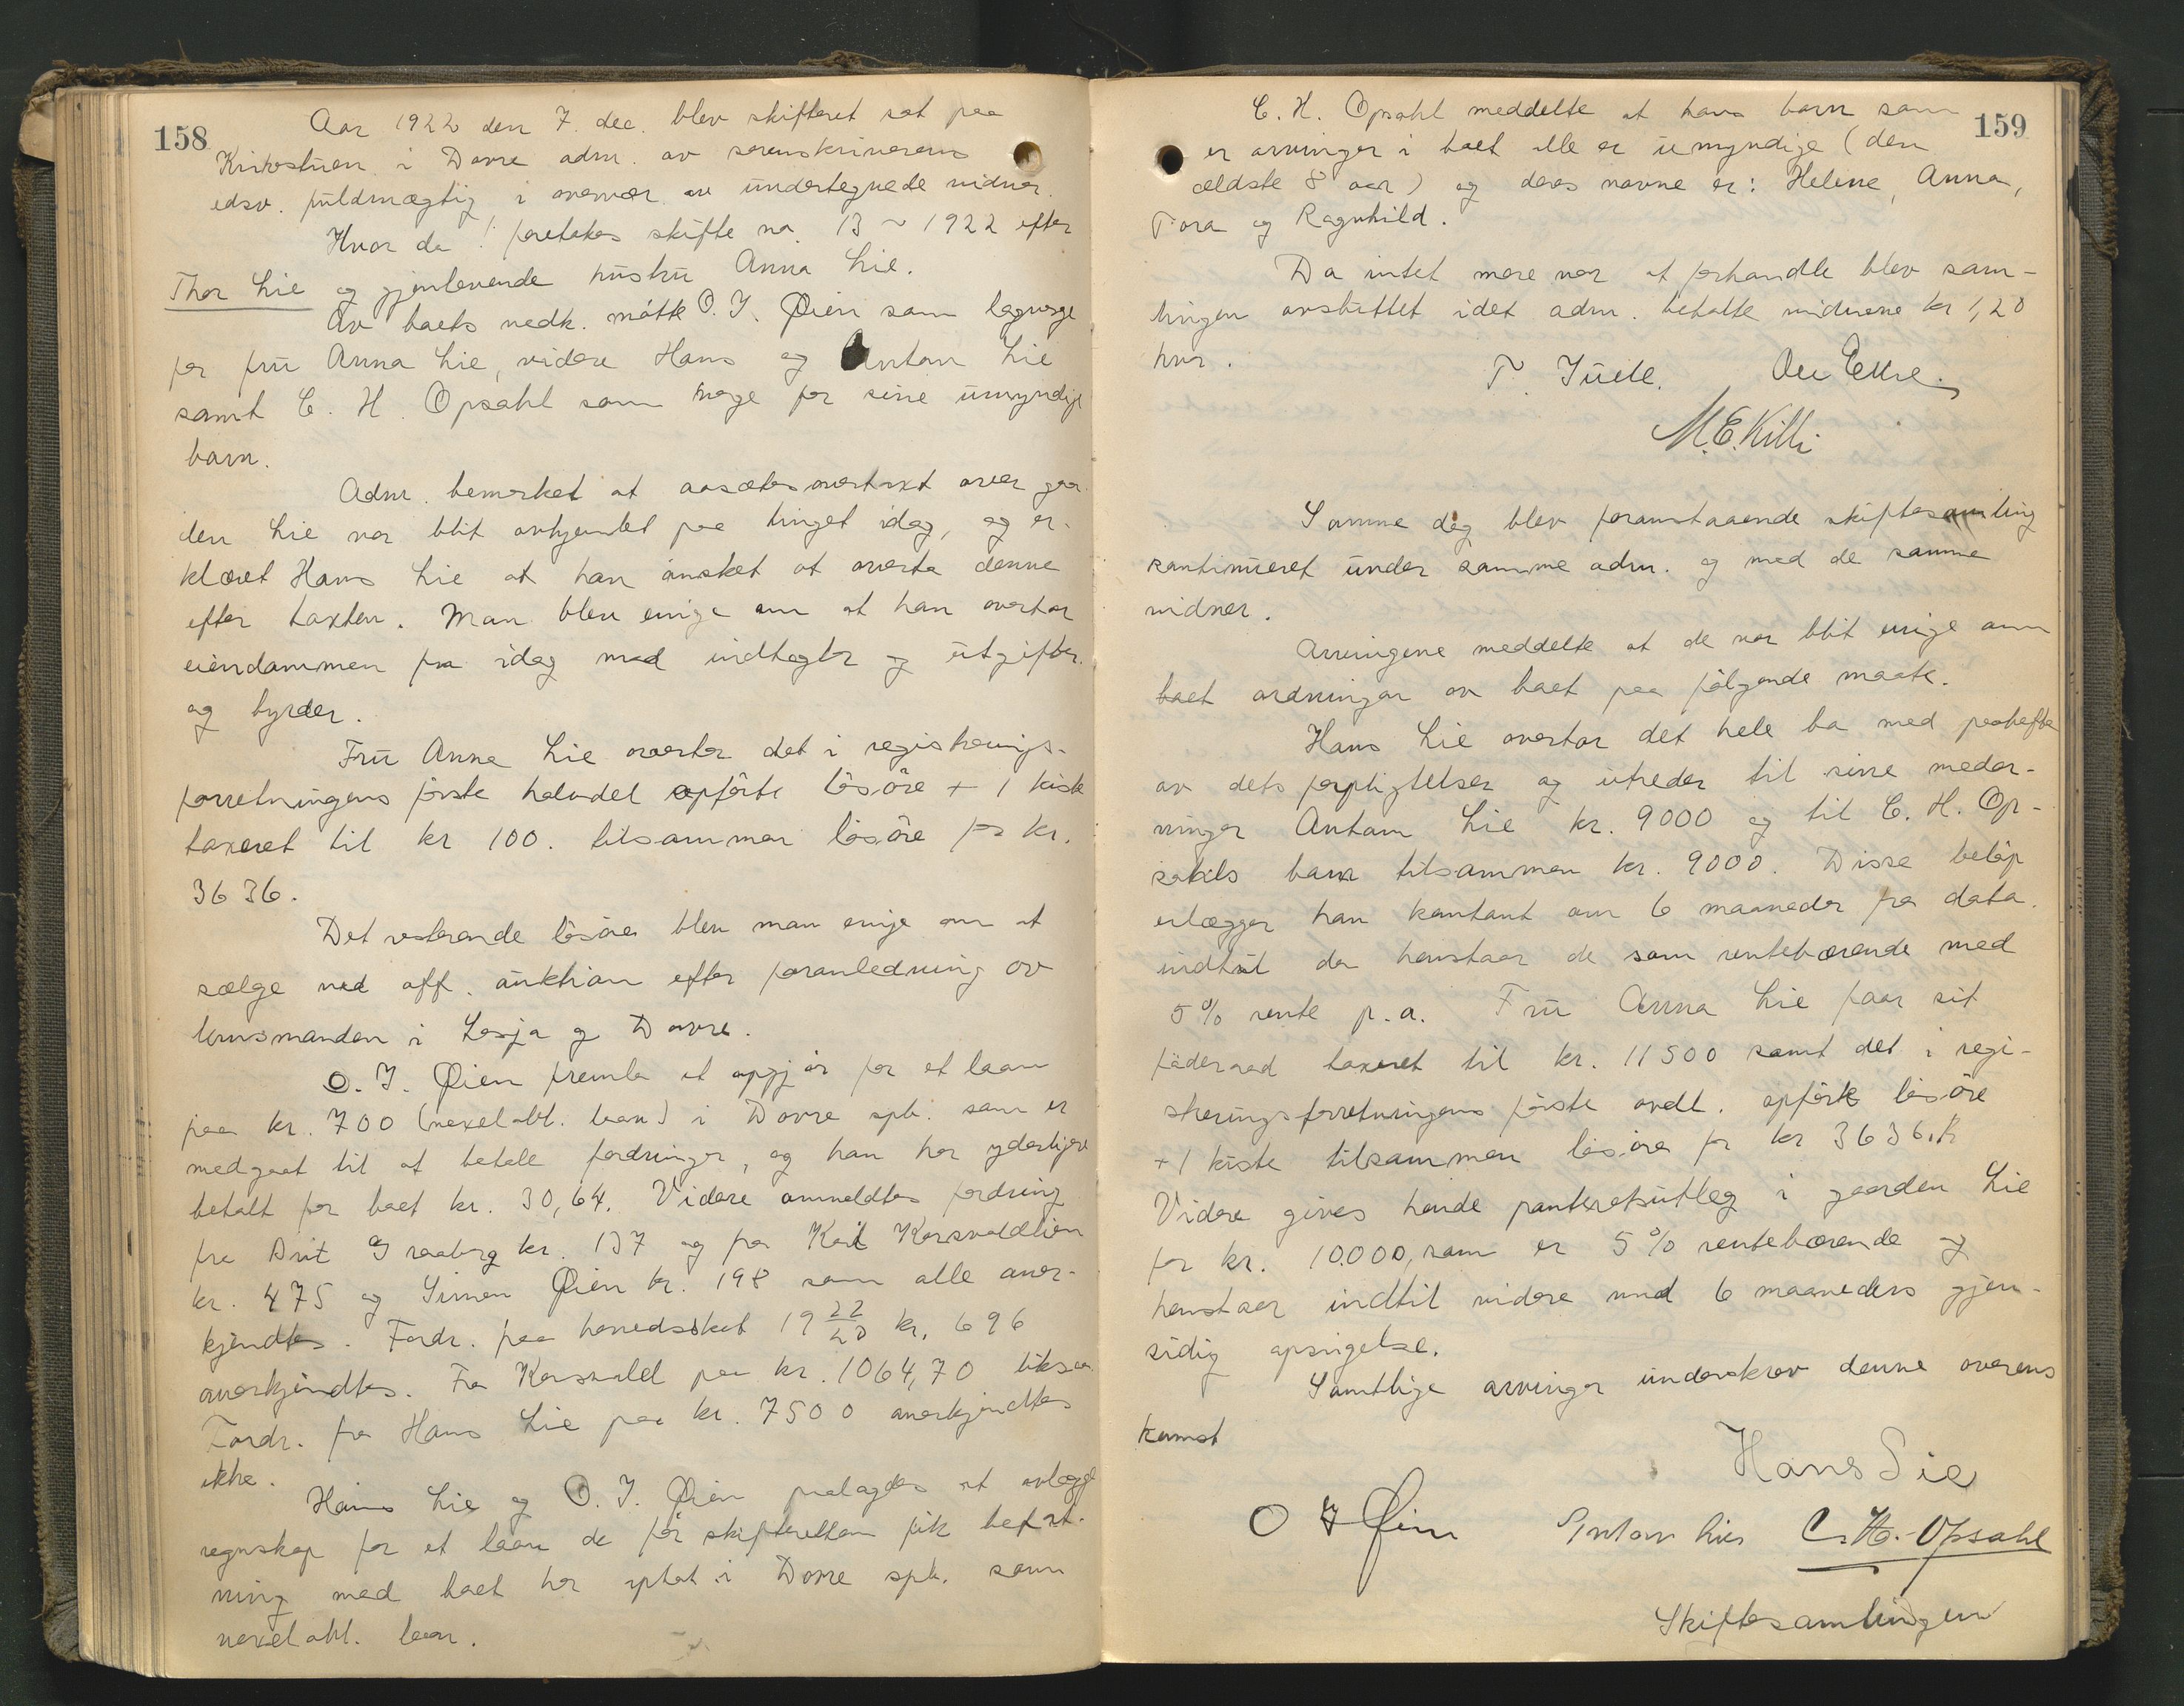 158
Aar 1922 den 7. dec. blev skifteret sat paa
Kirkestuen i Dovre adm. av sorenskriverens
edsv. fuldmægtig i overvær av undertegnede vidner.
Hvor da! foretokes skifte no. 13 ~ 1922 efter
Thor Lie og gjenlevende hustru Anna Lie.
Av boets vedk. mötte O. J. Øien som lagverge
for fru Anna Lie, videre Hans og Anton Lie
samt C. H. Opsahl som verge for sine umyndige
barn.
Adm. bemerket at aasætesovertaxt over gaar-
den Lie var blit avhjemlet paa tinget idag, og er-
klæret Hans Lie at han önsket at overta denne
efter taxten. Man blev enige om at han overtar
eiendommen fra idag med indtægter og utgifter.
og byrder.
Fru Anna Lie overtar det i registrerings-
forretningens förste halvdel opförte lösöre + 1 kiste
taxeret til kr 100. tilsammen lösöre for kr.
3636.
Det resterende lösöre blev man enige om at
sælge ved off. auktion efter foranledning av
lensmanden i Lesja og Dovre.
O. J. Øien fremla et opgjör for et laan
paa kr. 700 (vexelobl. laan) i Dovre spb. som er
medgaat til at betale fordringer, og han har yderligere
betalt for boet kr. 30,64. Videre anmeldtes fordring
fra Brit Graaberg kr. 137 og fra Kari Korsvoldlien
kr. 475 og Simen Øien kr. 198 som alle aner-
kjendtes. Fordr. paa herredsskat 19 22/20 kr. 696
anerkjendtes. Fra Korsvold paa kr. 1064,70 likesaa
Fordr. fra Hans Lie paa kr. 7500 anerkjendtes
ikke.
Hans Lie og O. J. Øien paalagdes at avlægge
regnskap for et laan de för skifteretten fik befat-
ning med boet har optat i Dovre spb. som
vexelobl. laan.
159
C. H. Opsahl meddelte at hans barn som
er arvinger i boet alle er umyndige (den
ældste 8 aar) og deres navne er: Helene, Anna,
Tora og Ragnhild.
Da intet mere var at forhandle blev sam-
lingen avsluttet idet adm. betalte vidnene kr 1,20
hver.
T. Juell.
M.E. Killi
Samme dag blev foranstaaende skiftesamling
kontinueret under samme adm. og med de samme
vidner.
Arvingene meddelte at de var blit enige om
boet ordningen av boet paa fölgende maate.
Hans Lie overtar det hele bo med paahefte
av dets forpligtelser og utreder til sine medar-
vinger Anton Lie kr. 9000 og til C. H. Op-
sahls barn tilsammen kr. 9000. Disse belöp
erlægger han kontant om 6 maaneder fra dato.
indtil da henstaar de som rentebærende med
5% rente p.a. Fru Anna Lie faar sit
föderaad taxeret til kr. 11500 samt det i regi-
streringsforretningens förste avdl. opförte lösöre
+ 1 kiste tilsammen lösöre for kr 3636.
Videre gives hende panteretsutlæg i gaarden Lie
for kr. 10.000, som er 5% rentebærende og
henstaar indtil videre med 6 maaneders gjen-
sidig opsigelse.
Samtlige arvinger underskrev denne overens
komst
Hans Lie
O J Øien Anton Lie C. H. Opsahl
Skiftesamlingen